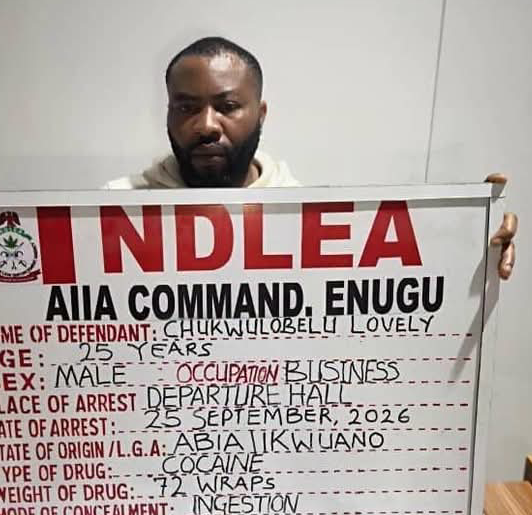 NDLEA
AIIA COMMAND, ENUGU
ME OF DEFENDANT: CHUKWULOBELU LOVELY
GE: 25 YEARS
EX: MALE OCCUPATION BUSINESS
LACE OF ARREST DEPARTURE HALL
ATE OF ARREST: 25 SEPTEMBER, 2026
TATE OF ORIGIN/L.G.A: ABIA/IKWUANO
YPE OF DRUG: COCAINE
WEIGHT OF DRUG: 72 WRAPS
MODE OF CONCEALMENT: INGESTION